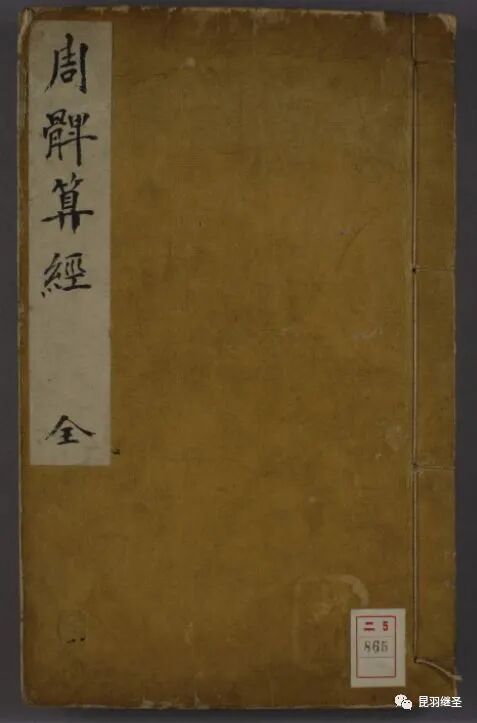 周髀算經 全
二 5
865
昆羽继圣